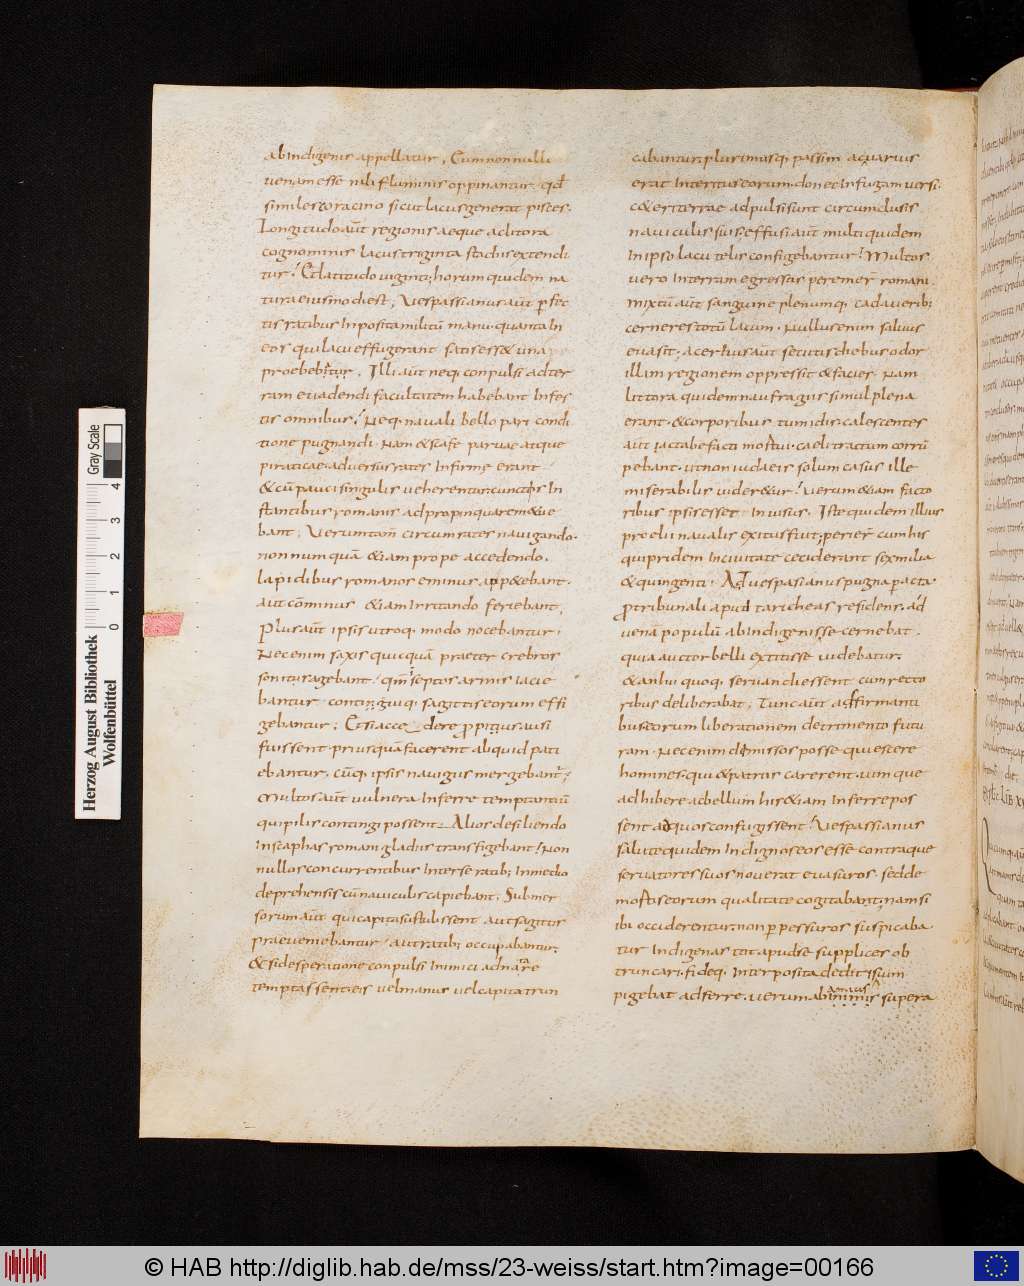 ab indigenis appellatur. Cum nonnulli
uenam esse nili fluminis oppinantur. qd̄
simile scoracino sicut lacus generat pisces.
Longitudo aūt regionis aeque ac litora
cognominis lacus triginta stadiis extendi
tur. Et latitudo uiginti; horum quidem na
tura eiusmodi est. Vespassianus aūt ꝑfec
tis ratibus Inposita militū manu. quanta In
eos qui lacu effugerant satis ess& una
proebebatur. Illi aūt neq; conpulsi ad ter
ram euadendi facultatem habebant Infes
tis omnibus. Neq; nauali bello pari condi
tione pugnandi. Nam & scafe paruae atque
piraticae. aduersus rates Infirme erant
& cū pauci singulis ueherentur. cunctos In
stantibus romanis adpropinquare m&ue
bant. Verumtam̄ circum rates nauigando.
non numquā &iam prope accedendo.
lapidibus romanos eminus app&ebant.
aut cōminus &iam Inritando feriebant.
Plus aūt ipsis utroq; modo nocebantur.
Nec enim saxis quicquā praeter crebros
sonitus agebant. qm̄ septos armis iacie
bantur continguiq; sagittis eorum effi
gebantur. Et si accedere ꝓpitus ausi
fuissent. priusquā facerent aliquid pati
ebantur. cūq; ipsis nauigiis mergebant̄.
Multos aūt uulnera Inferre temptantiū
qui pilis contingi possent. Alios desiliendo
In scaphas romani gladiis transfigebant. Non
nullos concurrentibus Inter se ratib; In medio
deprehensis cū nauiculis capiebant. Submer
sorum aūt qui capita sustulissent aut sagitte
praeueniebantur. aut ratib; occupabantur.
& si desperatione conpulsi Inimici ad nare
temptassent. eis uel manus uel capita trun
cabantur. plurimusq; passim ac uarius
erat Interitus eorum. donec Infugam uersi.
c&eri terrae adpulsi sunt circumclusis
nauiculis suis. effusi aūt multi quidem
In ipso lacu telis configebantur. Multos
uero Interram egressos peremer̄ romani.
mixtū aūt sanguine plenumq; cadauerib;
cerneres totū lacum. Nullus enim saluus
euasit. acerbus aūt secutis diebus odor
illam regionem oppressit & facies. Nam
littora quidem naufragiis simul plena
erant. & corporibus tumidis. calescentes
aūt tactabefacti mortui. caeli tractum corrū
pebant. ut non iudaeis solum casus ille
miserabilis uider&ur. Verum &iam facto
ribus ipsis esset Inuisus. Iste quidem illius
proelii naualis exitus fuit. perier̄ cum his
qui pridem In ciuitate ceciderant sex milia
& quingenti. Ad uespasianus pugna ꝑacta
ꝓ tribunali apud taricheas residens. ad
uenā populū ab Indigenis secernebat.
quia auctor belli extitisse uidebatur.
& an hii quoq; seruandi essent cum recto
ribus deliberabat. Tunc aūt adffirmanti
bus eorum liberationem detrimento futu
ram. Nec enim dimissos posse quiescere
homines. qui & patriis carerent. uimque
adhibere ad bellum his &iam Inferre pos
sent ad quos confugissent. Vespassianus
salute quidem Indignos eos esse. contraque
seruatores suos nouerat euasuros. sed de
mortis eorum qualitate cogitabant. nam si
ibi occiderentur. non ꝑpessuros suspicaba
tur Indigenas tot apud se supplices ob
truncari. fideq; Interposita deditis uim
pigebat adferre. uerum ab amicis nimis supera
Herzog August Bibliothek
Wolfenbüttel
0 1 2 3 4
Gray Scale
© HAB http://diglib.hab.de/mss/23-weiss/start.htm?image=00166